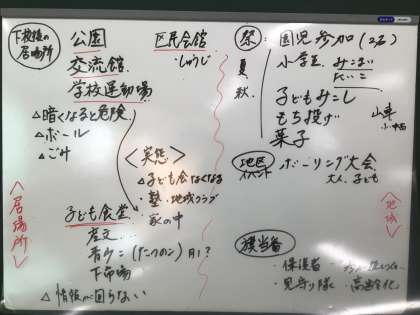 下校後の居場所
公園
交流館
学校運動場
△暗くなると危険
△ボール
△ごみ
区民会館
しゅうじ
＜実態＞
△子ども食なくなる
塾・地域クラブ
家の中
子ども食堂
月1?
下市場
△情報が回らない
＜居場所＞
祭
園児参加(2名)
夏
秋
小学生
みこまい
子どもみこし
もち投げ
菓子
山車
小・中・高
地区イベント
ボーリング大会
大人、子ども
旗当番
・保護者
・見守り隊
・高齢化
＜地域＞